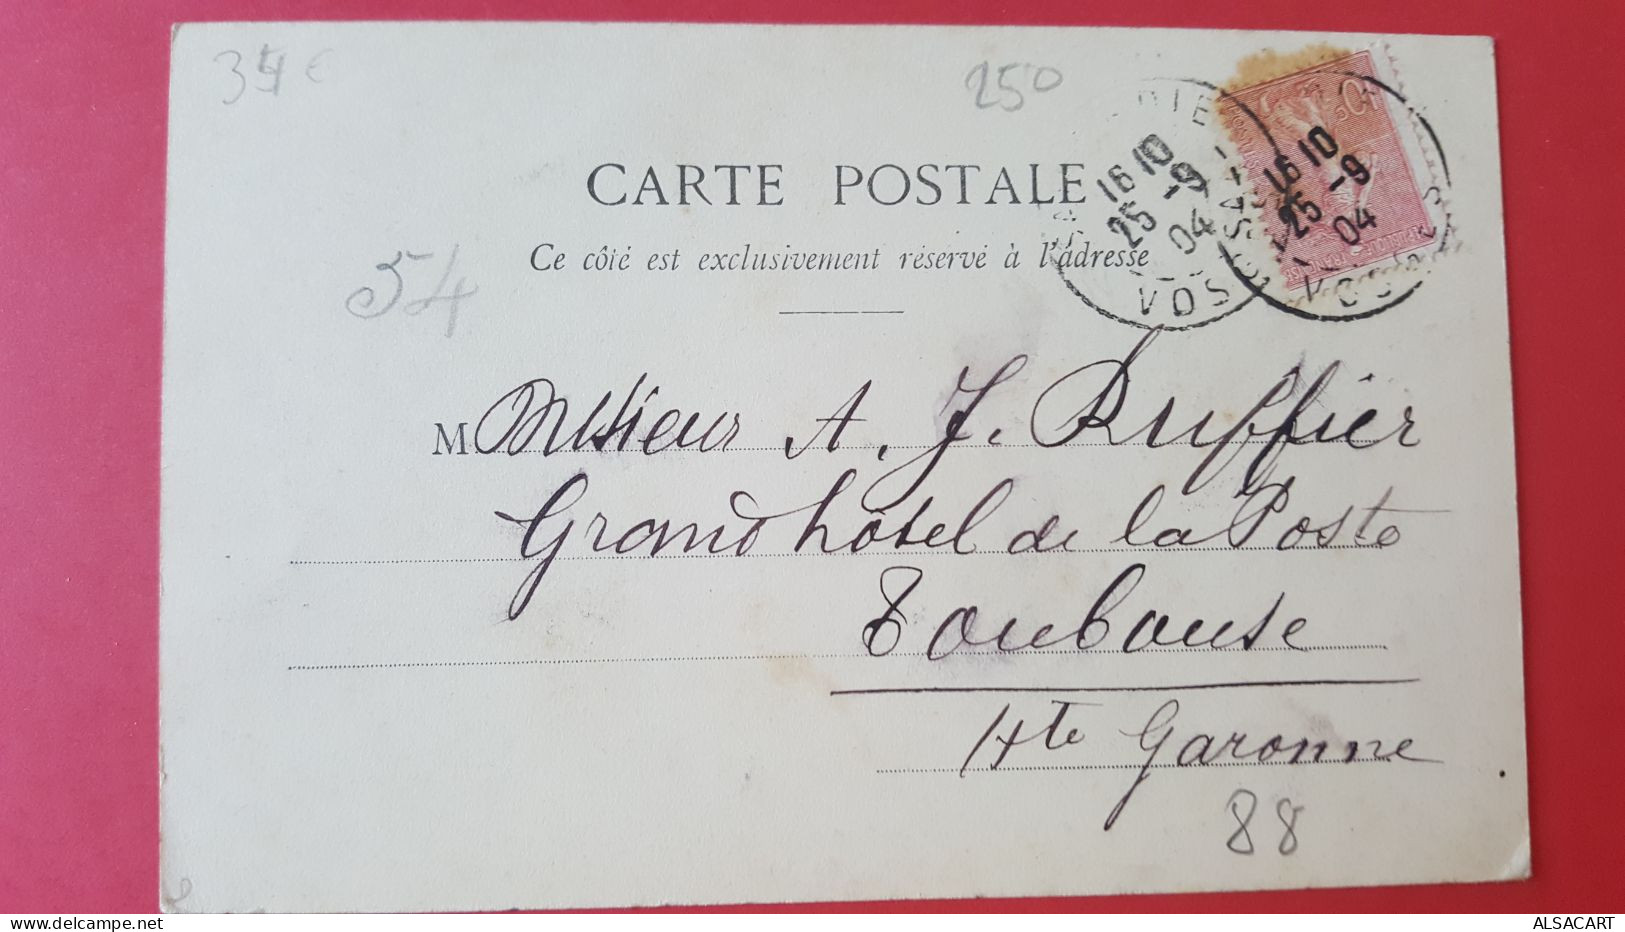 35 €
250
CARTE POSTALE
Ce côté est exclusivement réservé à l'adresse
16 10
25 -9
04
VOSGES
16 10
25 -9
04
54
M Monsieur A. J. Ruffier
Grand hôtel de la Poste
Toulouse
Hte Garonne
88
delcampe.net
ALSACART